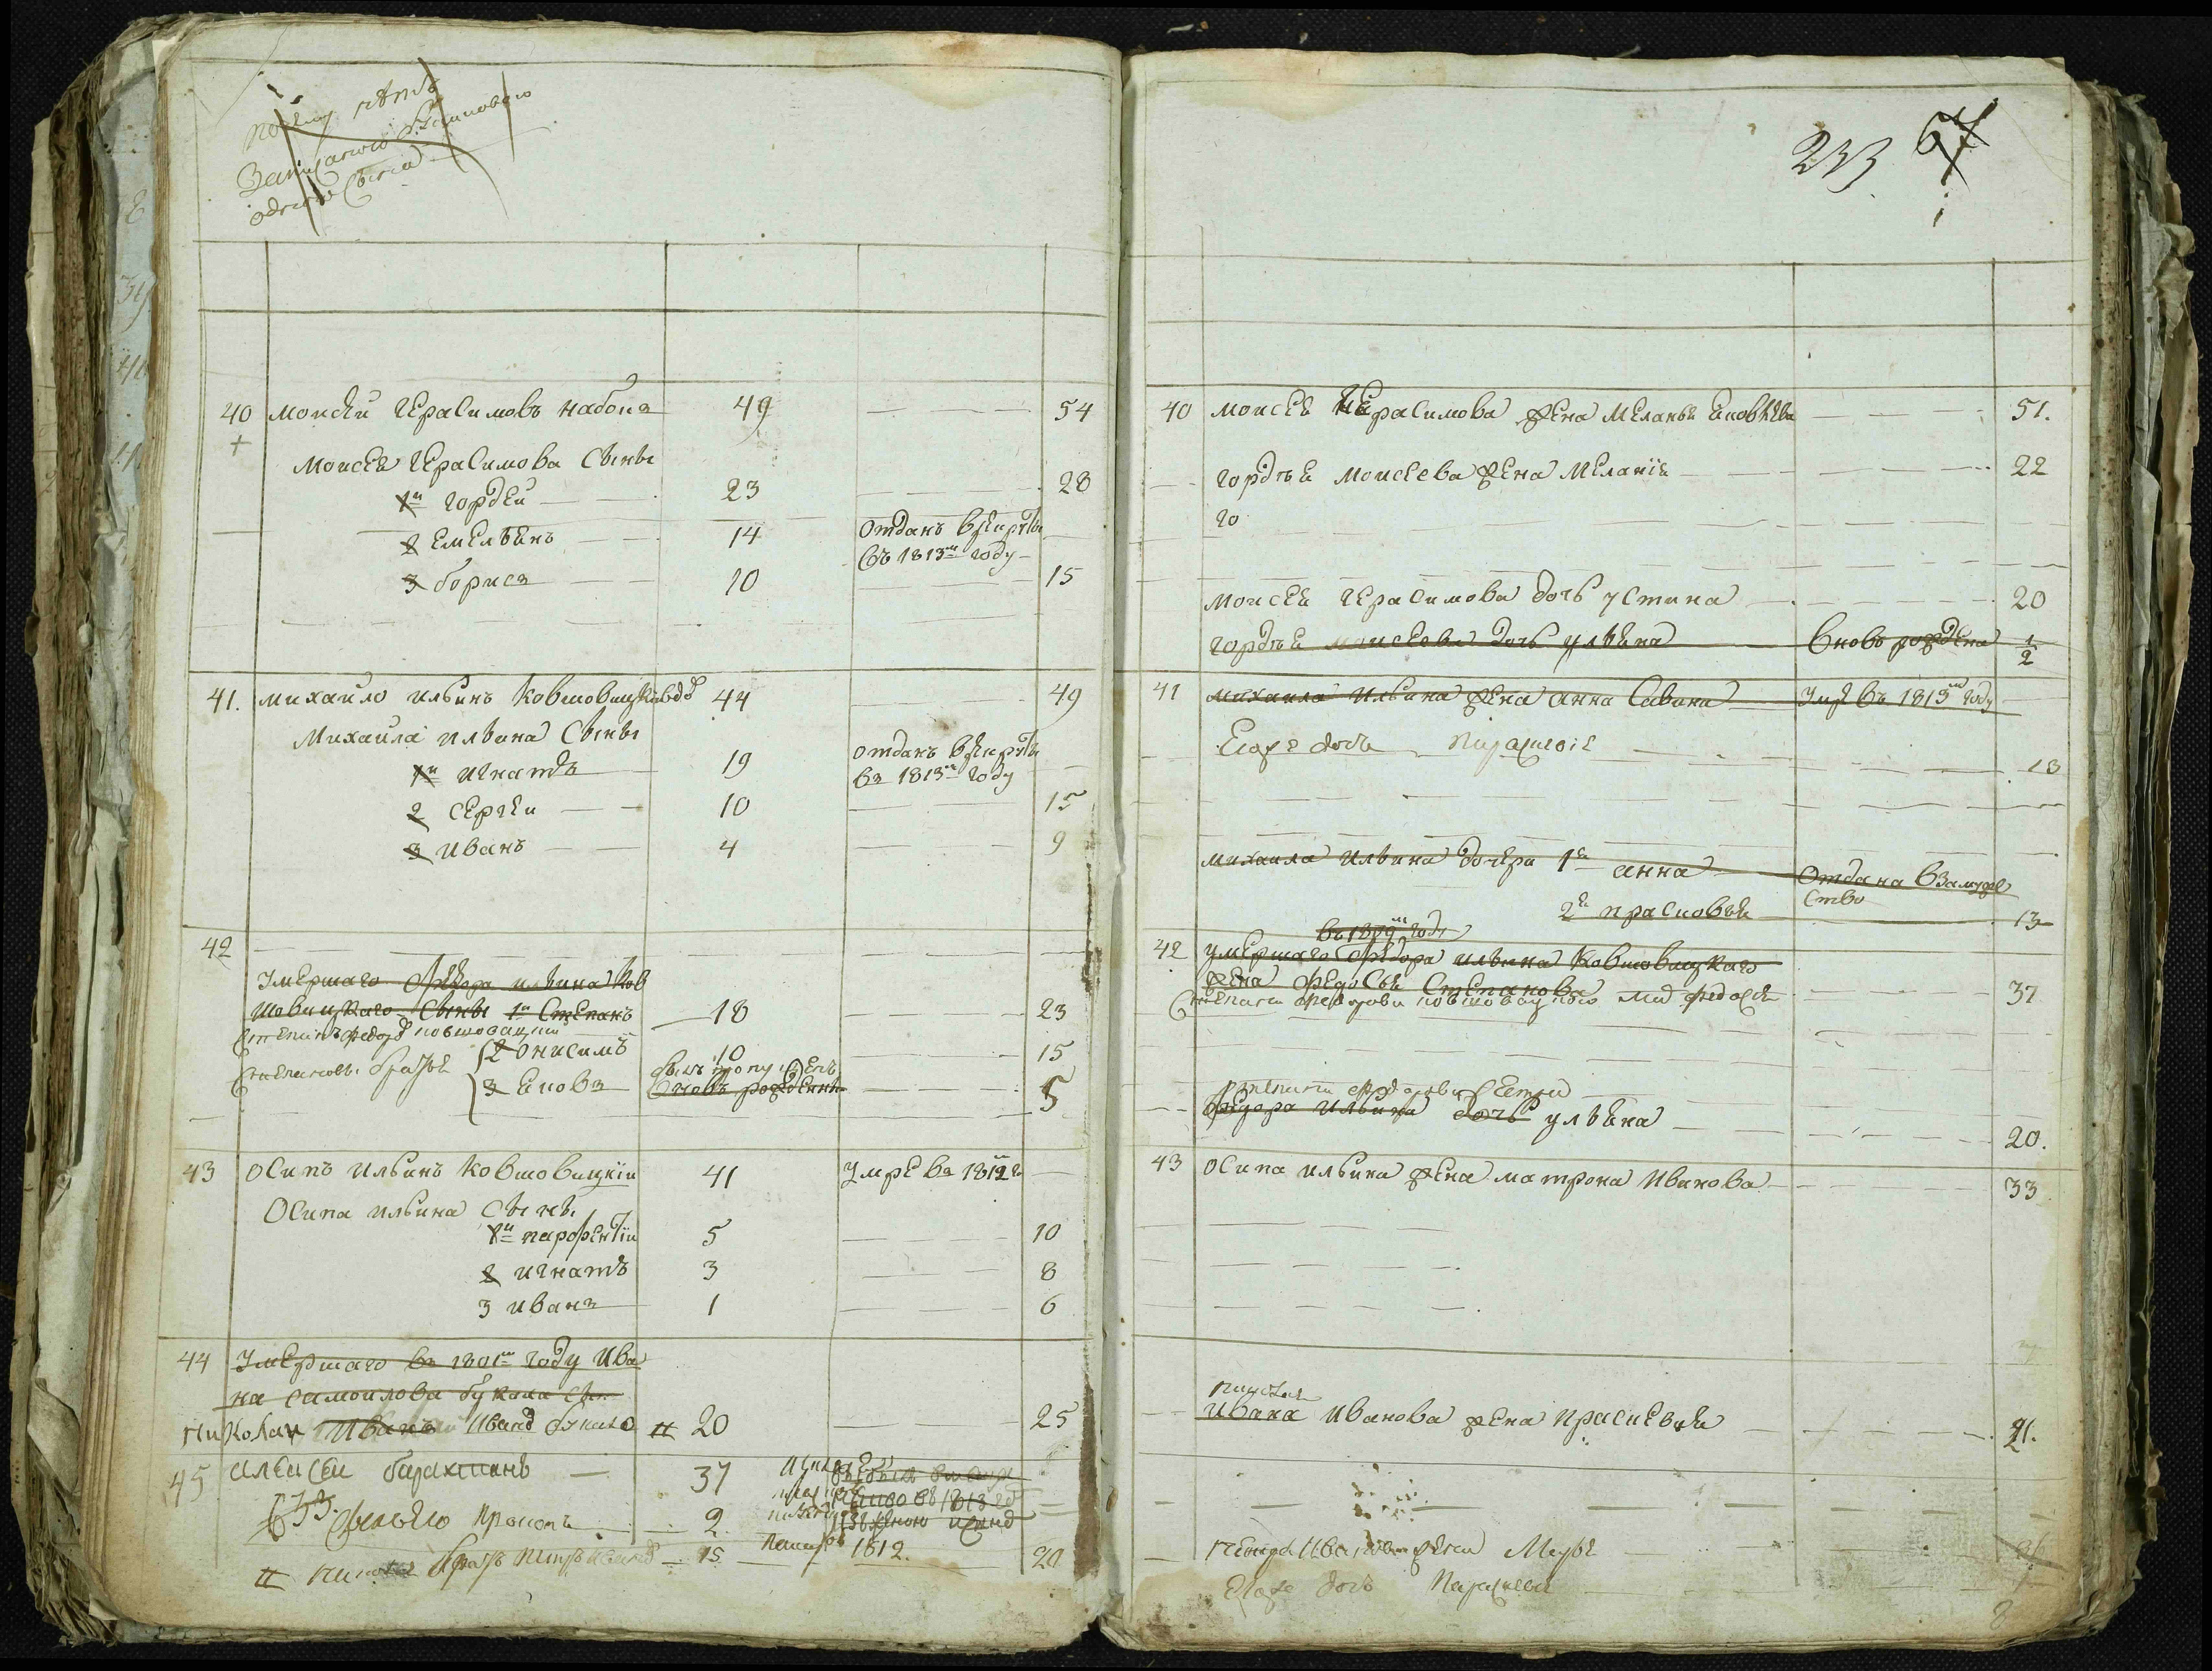 233 67
40 Моисей Герасимовъ набока 49 54
Моисея Герасимова сыны
1й Гордей 23 28
2 Емельянъ 14 отданъ в рекруты
въ 1813м году
3 бориса 10 15
41. Михайло Ильинъ Ковшовицкий 44 49
Михаила Ильина Сыны
1й Игнатъ 19 отданъ в рекруты
въ 1813м году
2 Сергей 10 15
3 Иванъ 4 9
42
Умершаго Федора Ильина Ков
шовицкаго Сыны 1й Степанъ 18 23
Степановы братья 2 Онисимъ 10 15
3 Яковъ вновь рожденны 5
43 Осипъ Ильинъ Ковшовицкій 41 Умре въ 1812 г
Осипа Ильина Сыны
1й парфентій 5 10
2 Игнатъ 3 8
3 Иванъ 1 6
44 Умершаго въ 1801м году Ива
на Самойлова букала
Николай Иванъ Иванов букало 20 25
45 Алексей 37
въ 1813
2.
братъ Петръ 15 1812. 20
40 Моисея Герасимова жена Меланья Яковлева 51.
Гордея Моисеева жена Меланія 22
го
Моисея Герасимова дочь Устина 20
Гордея Моисеева дочь Ульяна вновь рождена 1/2
41 Михаила Ильина жена Анна Савина Умре въ 1813м году
Егоже дочь 13
Михаила Ильина дочери 1я Анна отдана в замуже
ство
2я прасковья 13
въ 1809м году
42 Умершаго Федора Ильина Ковшовицкаго
жена Федосья Степанова
Степана Федорова Ковшовицкого Федосья 37
Степана Федорова сестра
Федора Ильина дочь Ульяна 20.
43 Осипа Ильина жена матрона Иванова 33
Николая
Ивана Иванова жена прасковья 21.
Петра Иванова жена Марья
Егоже дочь Параскева
8